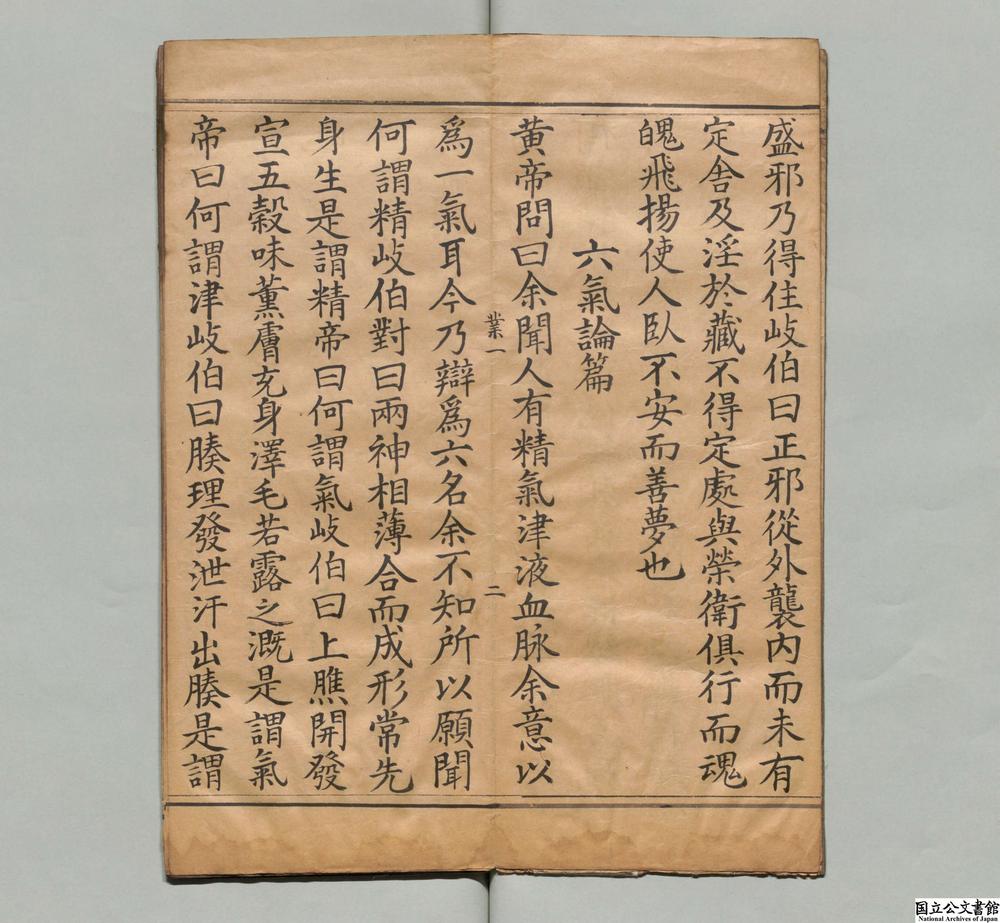 盛邪乃得住岐伯曰正邪從外襲内而未有
定舍及淫於藏不得定處與榮衛俱行而魂
魄飛揚使人臥不安而善夢也
六氣論篇
黃帝問曰余聞人有精氣津液血脉余意以
業一
二
為一氣耳今乃辯為六名余不知所以願聞
何謂精岐伯對曰兩神相薄合而成形常先
身生是謂精帝曰何謂氣岐伯曰上膲開發
宣五穀味薰膚充身澤毛若露之溉是謂氣
帝曰何謂津岐伯曰腠理發泄汗出腠是謂
国立公文書館
National Archives of Japan